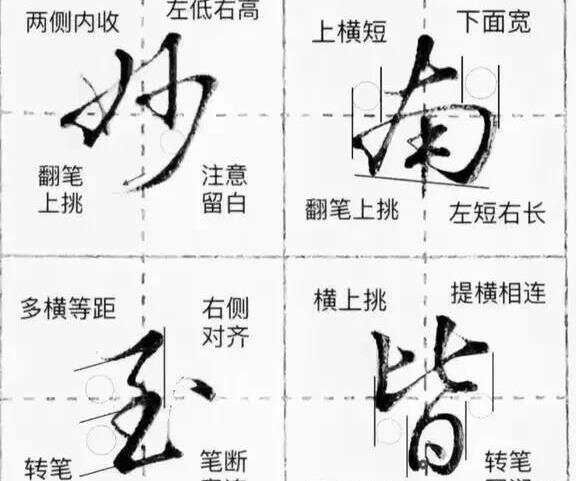 两侧内收
左低右高
妙
翻笔
上挑
注意
留白
上横短
下面宽
南
翻笔上挑
左短右长
多横等距
右侧
对齐
玉
转笔
笔断
横上挑
提横相连
皆
转笔